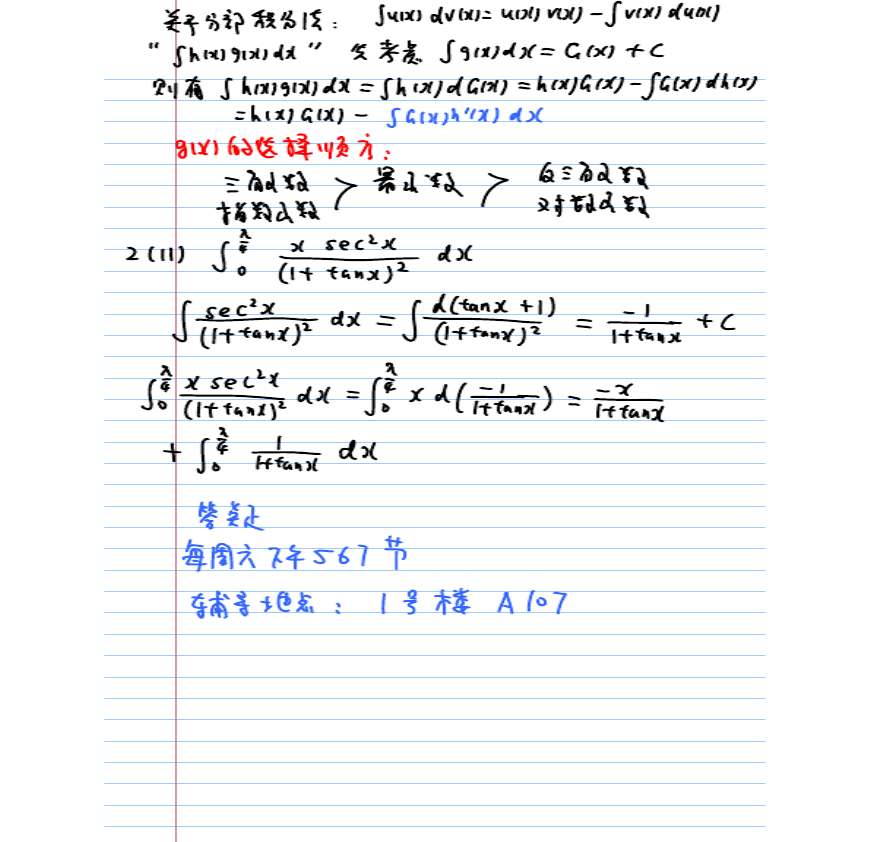 关于分部积分法: ∫u(x) dv(x) = u(x) v(x) - ∫v(x) du(x)
"∫h(x)g(x)dx" 先考虑 ∫g(x)dx = G(x) + C
则有 ∫h(x)g(x)dx = ∫h(x)dG(x) = h(x)G(x) - ∫G(x)dh(x)
= h(x)G(x) - ∫G(x)h'(x)dx
g(x)的选择顺序:
三角函数 指数函数 > 幂函数 > 反三角函数 对数函数
2(11) ∫_0^{π/4} \frac{x sec²x}{(1+tanx)²} dx
∫ \frac{sec²x}{(1+tanx)²} dx = ∫ \frac{d(tanx+1)}{(1+tanx)²} = \frac{-1}{1+tanx} + C
∫_0^{π/4} \frac{x sec²x}{(1+tanx)²} dx = ∫_0^{π/4} x d(\frac{-1}{1+tanx}) = \frac{-x}{1+tanx}
+ ∫_0^{π/4} \frac{1}{1+tanx} dx
答疑
每周六下午567节
辅导地点: 1号楼 A107